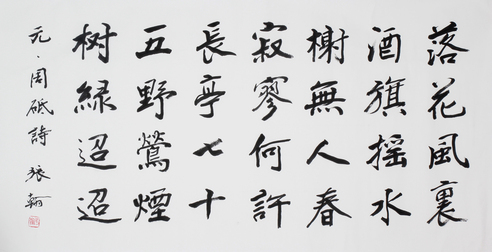 落花風裏
酒旗摇水
榭無人春
寂寥何許
長亭七十
五野鶯煙
树緑迢迢
元·周砥詩 振翰